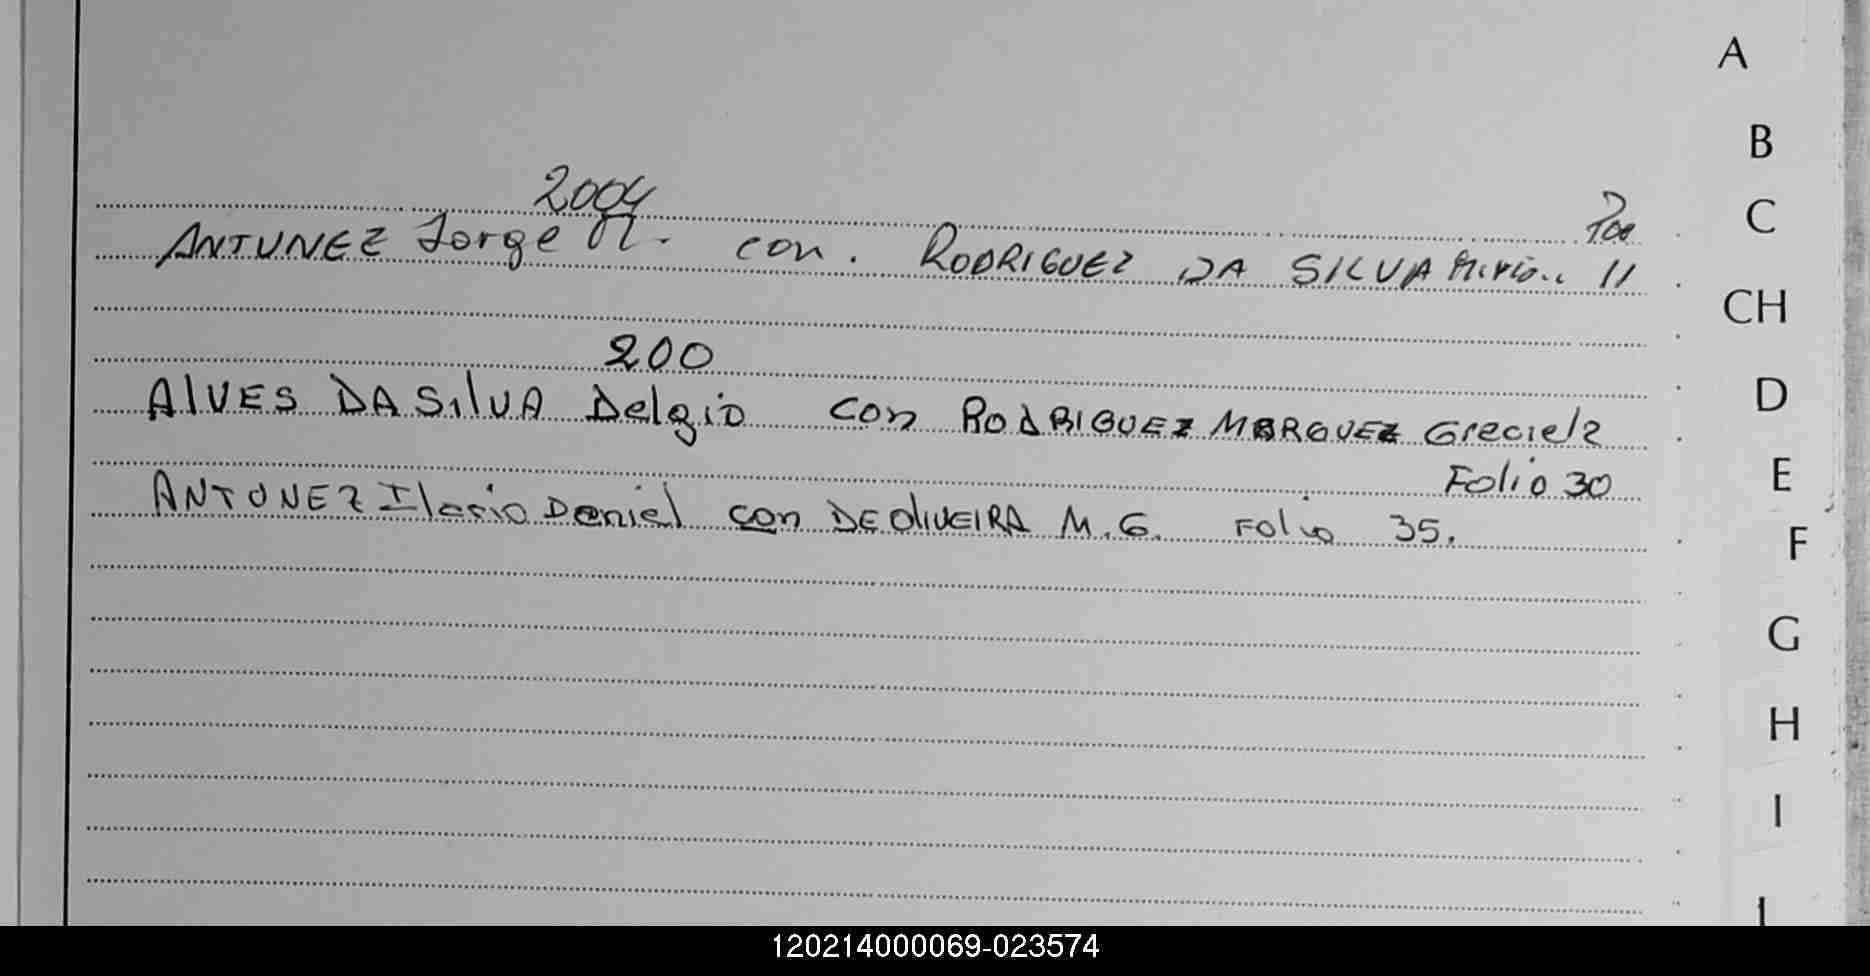 2004
ANTUNEZ Jorge M. con. RODRIGUEZ DA SILVA Miria.. 11
200
AlVES DA SilVA Delgio con RODRIGUEZ MARQUEZ Greciela
Folio 30
ANTUNEZ Ilario Daniel con DE OliVEIRA M.G. Folio 35.
A
B
C
CH
D
E
F
G
H
I
120214000069-023574